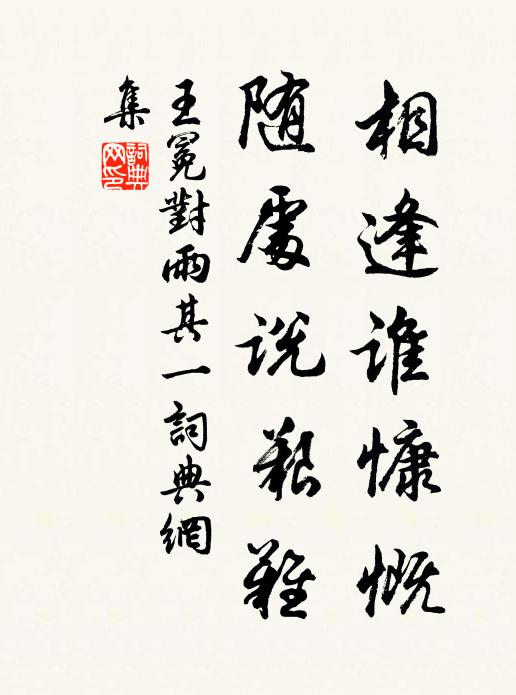 相逢谁慷慨
随處说艱難
王冕對雨其一詞典網
集
詞典网印